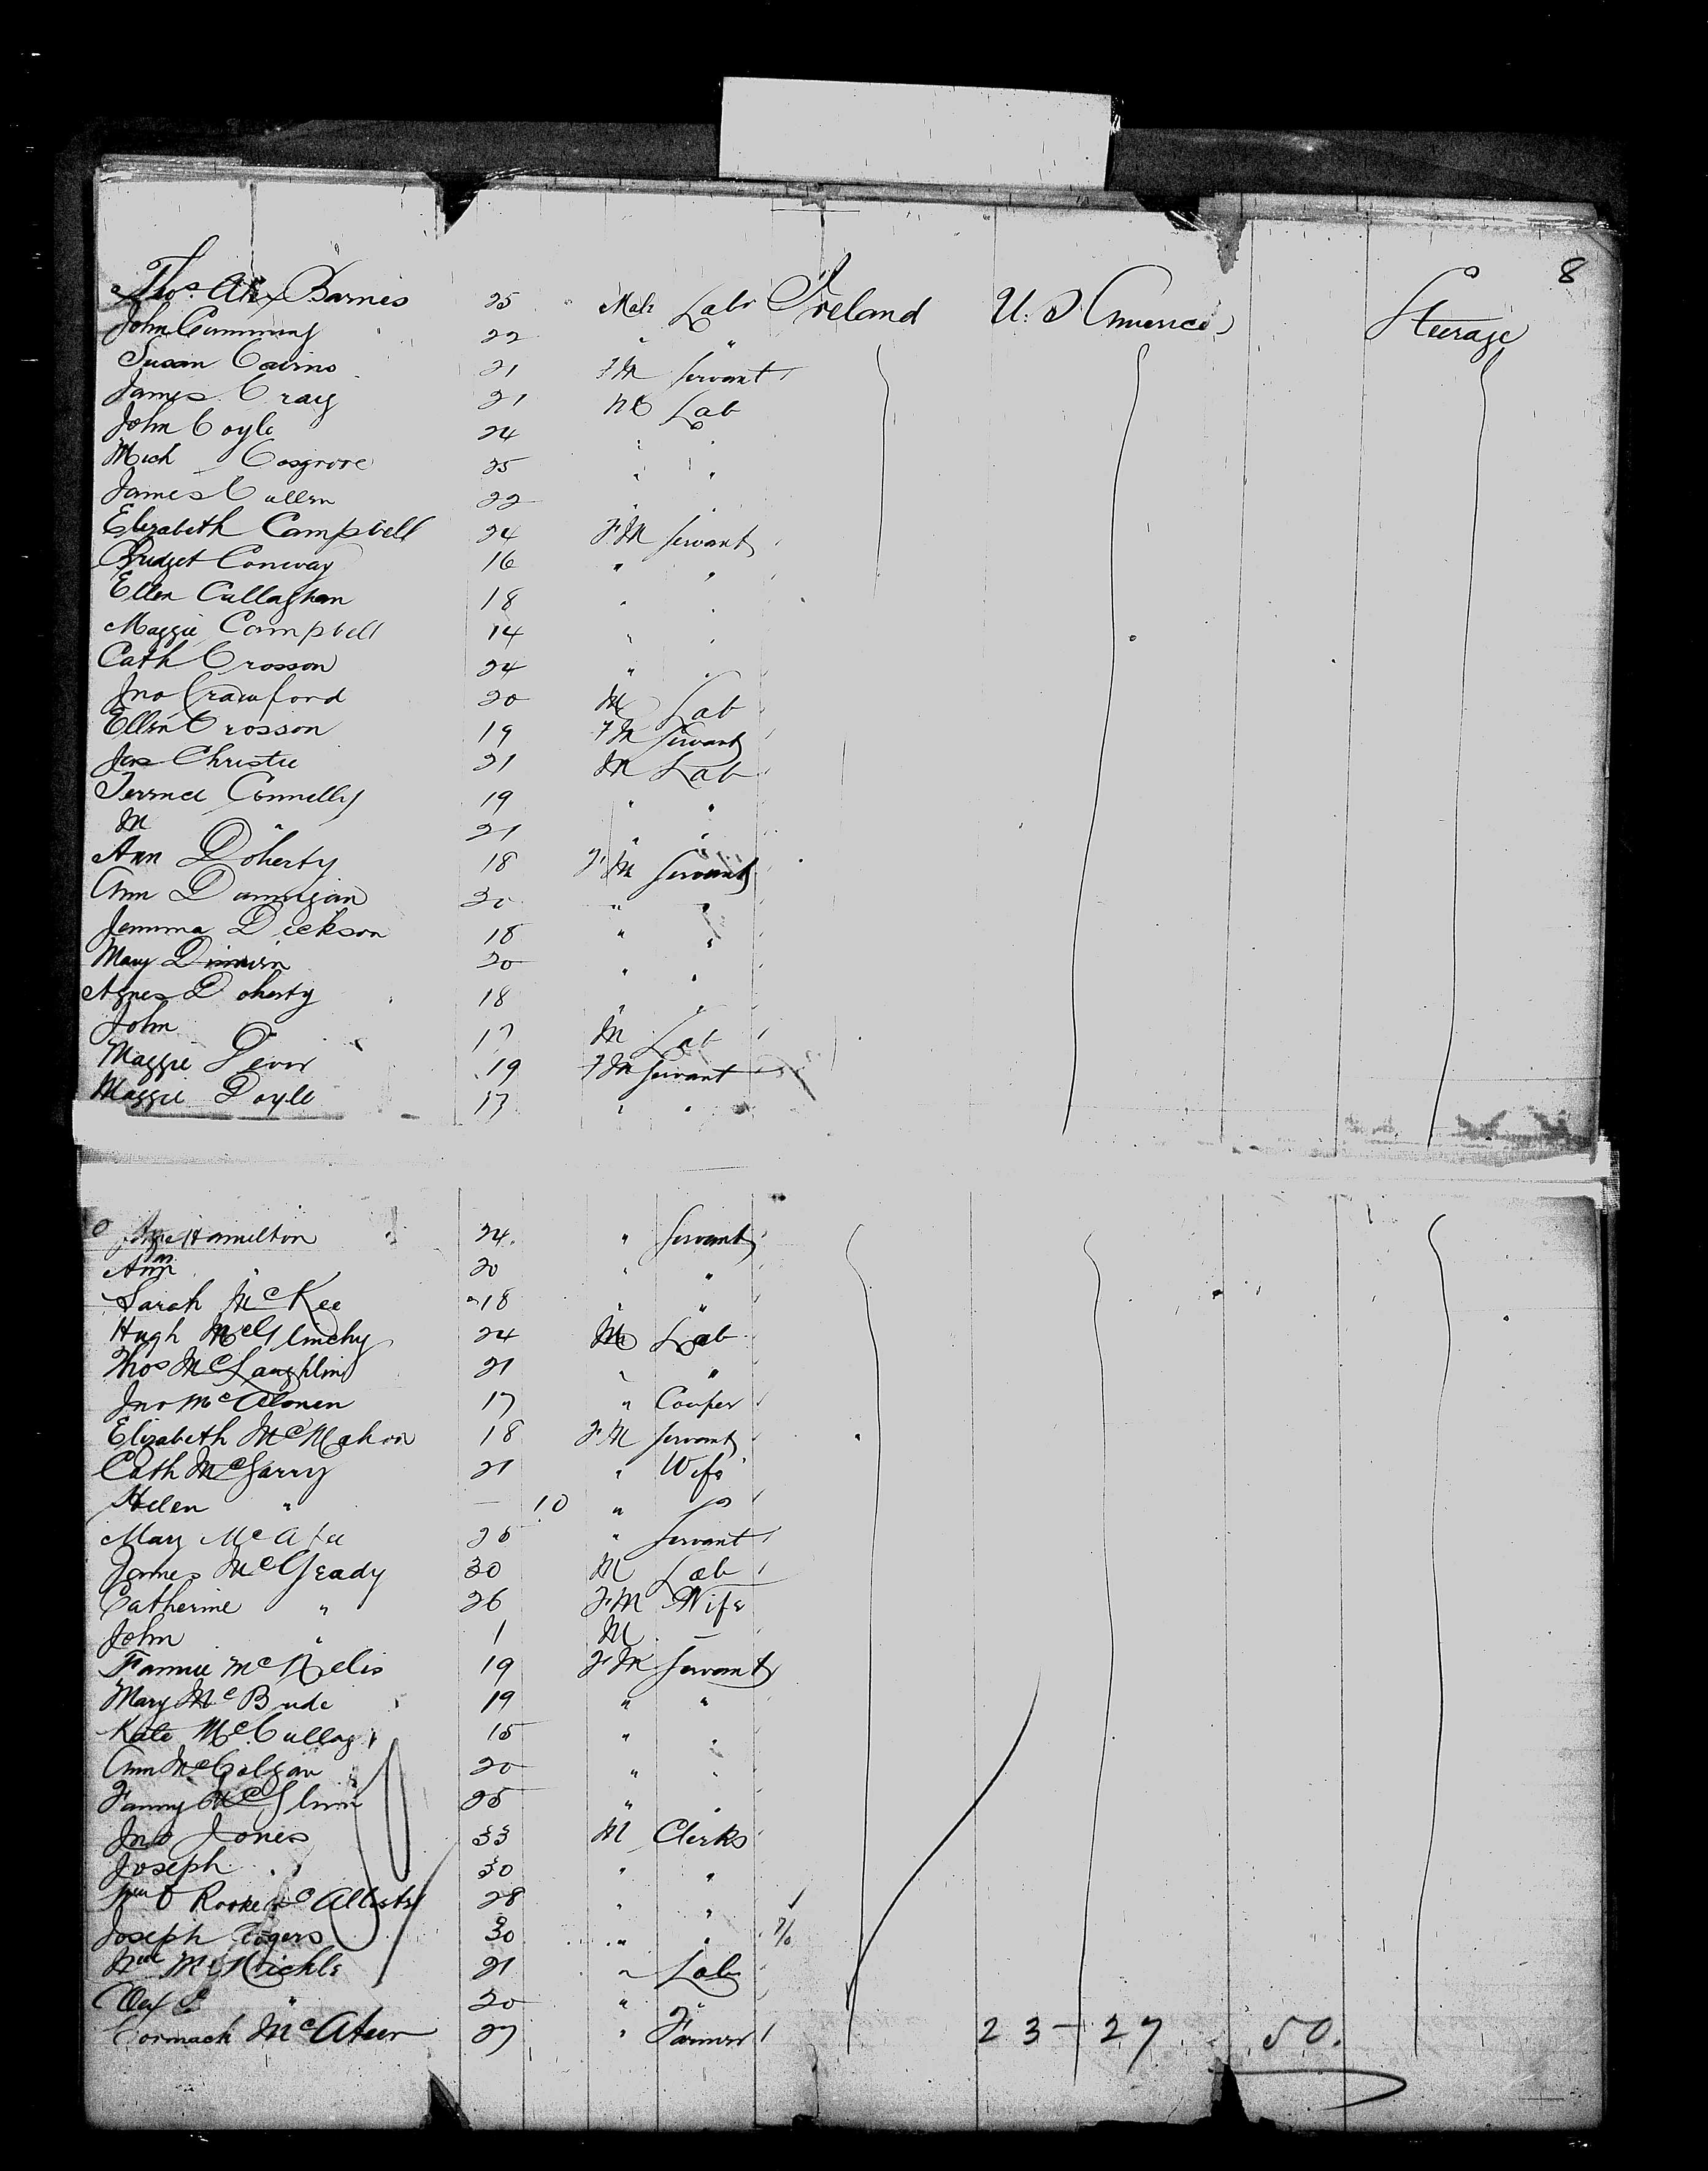 8
Thos. Alex Barnes 25 Male Labr Ireland U. S America Steerage
John Cumming 22 " "
Susan Cairns 21 FM Servant
James Craig 21 M Lab
John Coyle 24 " "
Mich Cosgrove 25 " "
James Cullen 22 " "
Elizabeth Campbell 24 FM Servant
Bridget Conway 16 " "
Ellen Callaghan 18 " "
Maggie Campbell 14 " "
Cath Crosson 24 " "
Jno Crawford 20 M Lab
Ellen Crosson 19 FM Servant
Jas Christie 21 M Lab
Terence Connelly 19 " "
M " 21 " "
Ann Doherty 18 FM Servant
Ann Dunnigan 30 " "
Jemima Dickson 18 " "
Mary 20 " "
Agnes Doherty 18 " "
John " 17 M Lab
Maggie Dever 19 FM Servant
Maggie Doyle 17 " "
Hamilton 24 " Servant
Ann " 20 " "
Sarah McKee 18 " "
Hugh McGlinchy 24 M Lab
Thos McLaughlin 21 " "
Jno McAlonen 17 " Cooper
Elizabeth McMahon 18 FM Servant
Cath McGarry 21 " Wife
Helen " — 10 "
Mary McAfee 25 " Servant
James McGeady 30 M Lab
Catherine " 26 FM Wife
John " 1 M —
Fannie McNelis 19 FM Servant
Mary McBride 19 " "
Kate McCullagh 15 " "
Ann McColgan 20 " "
Fanny McGlinn 25 " "
Jno Jones 33 M Clerks
Joseph " 30 " "
Rooke McAllister 28 " "
Joseph Rogers 30 " "
McNichle 21 " Lab
" 20 " "
Cormack McAteer 27 " Farmer 23 - 27 50.